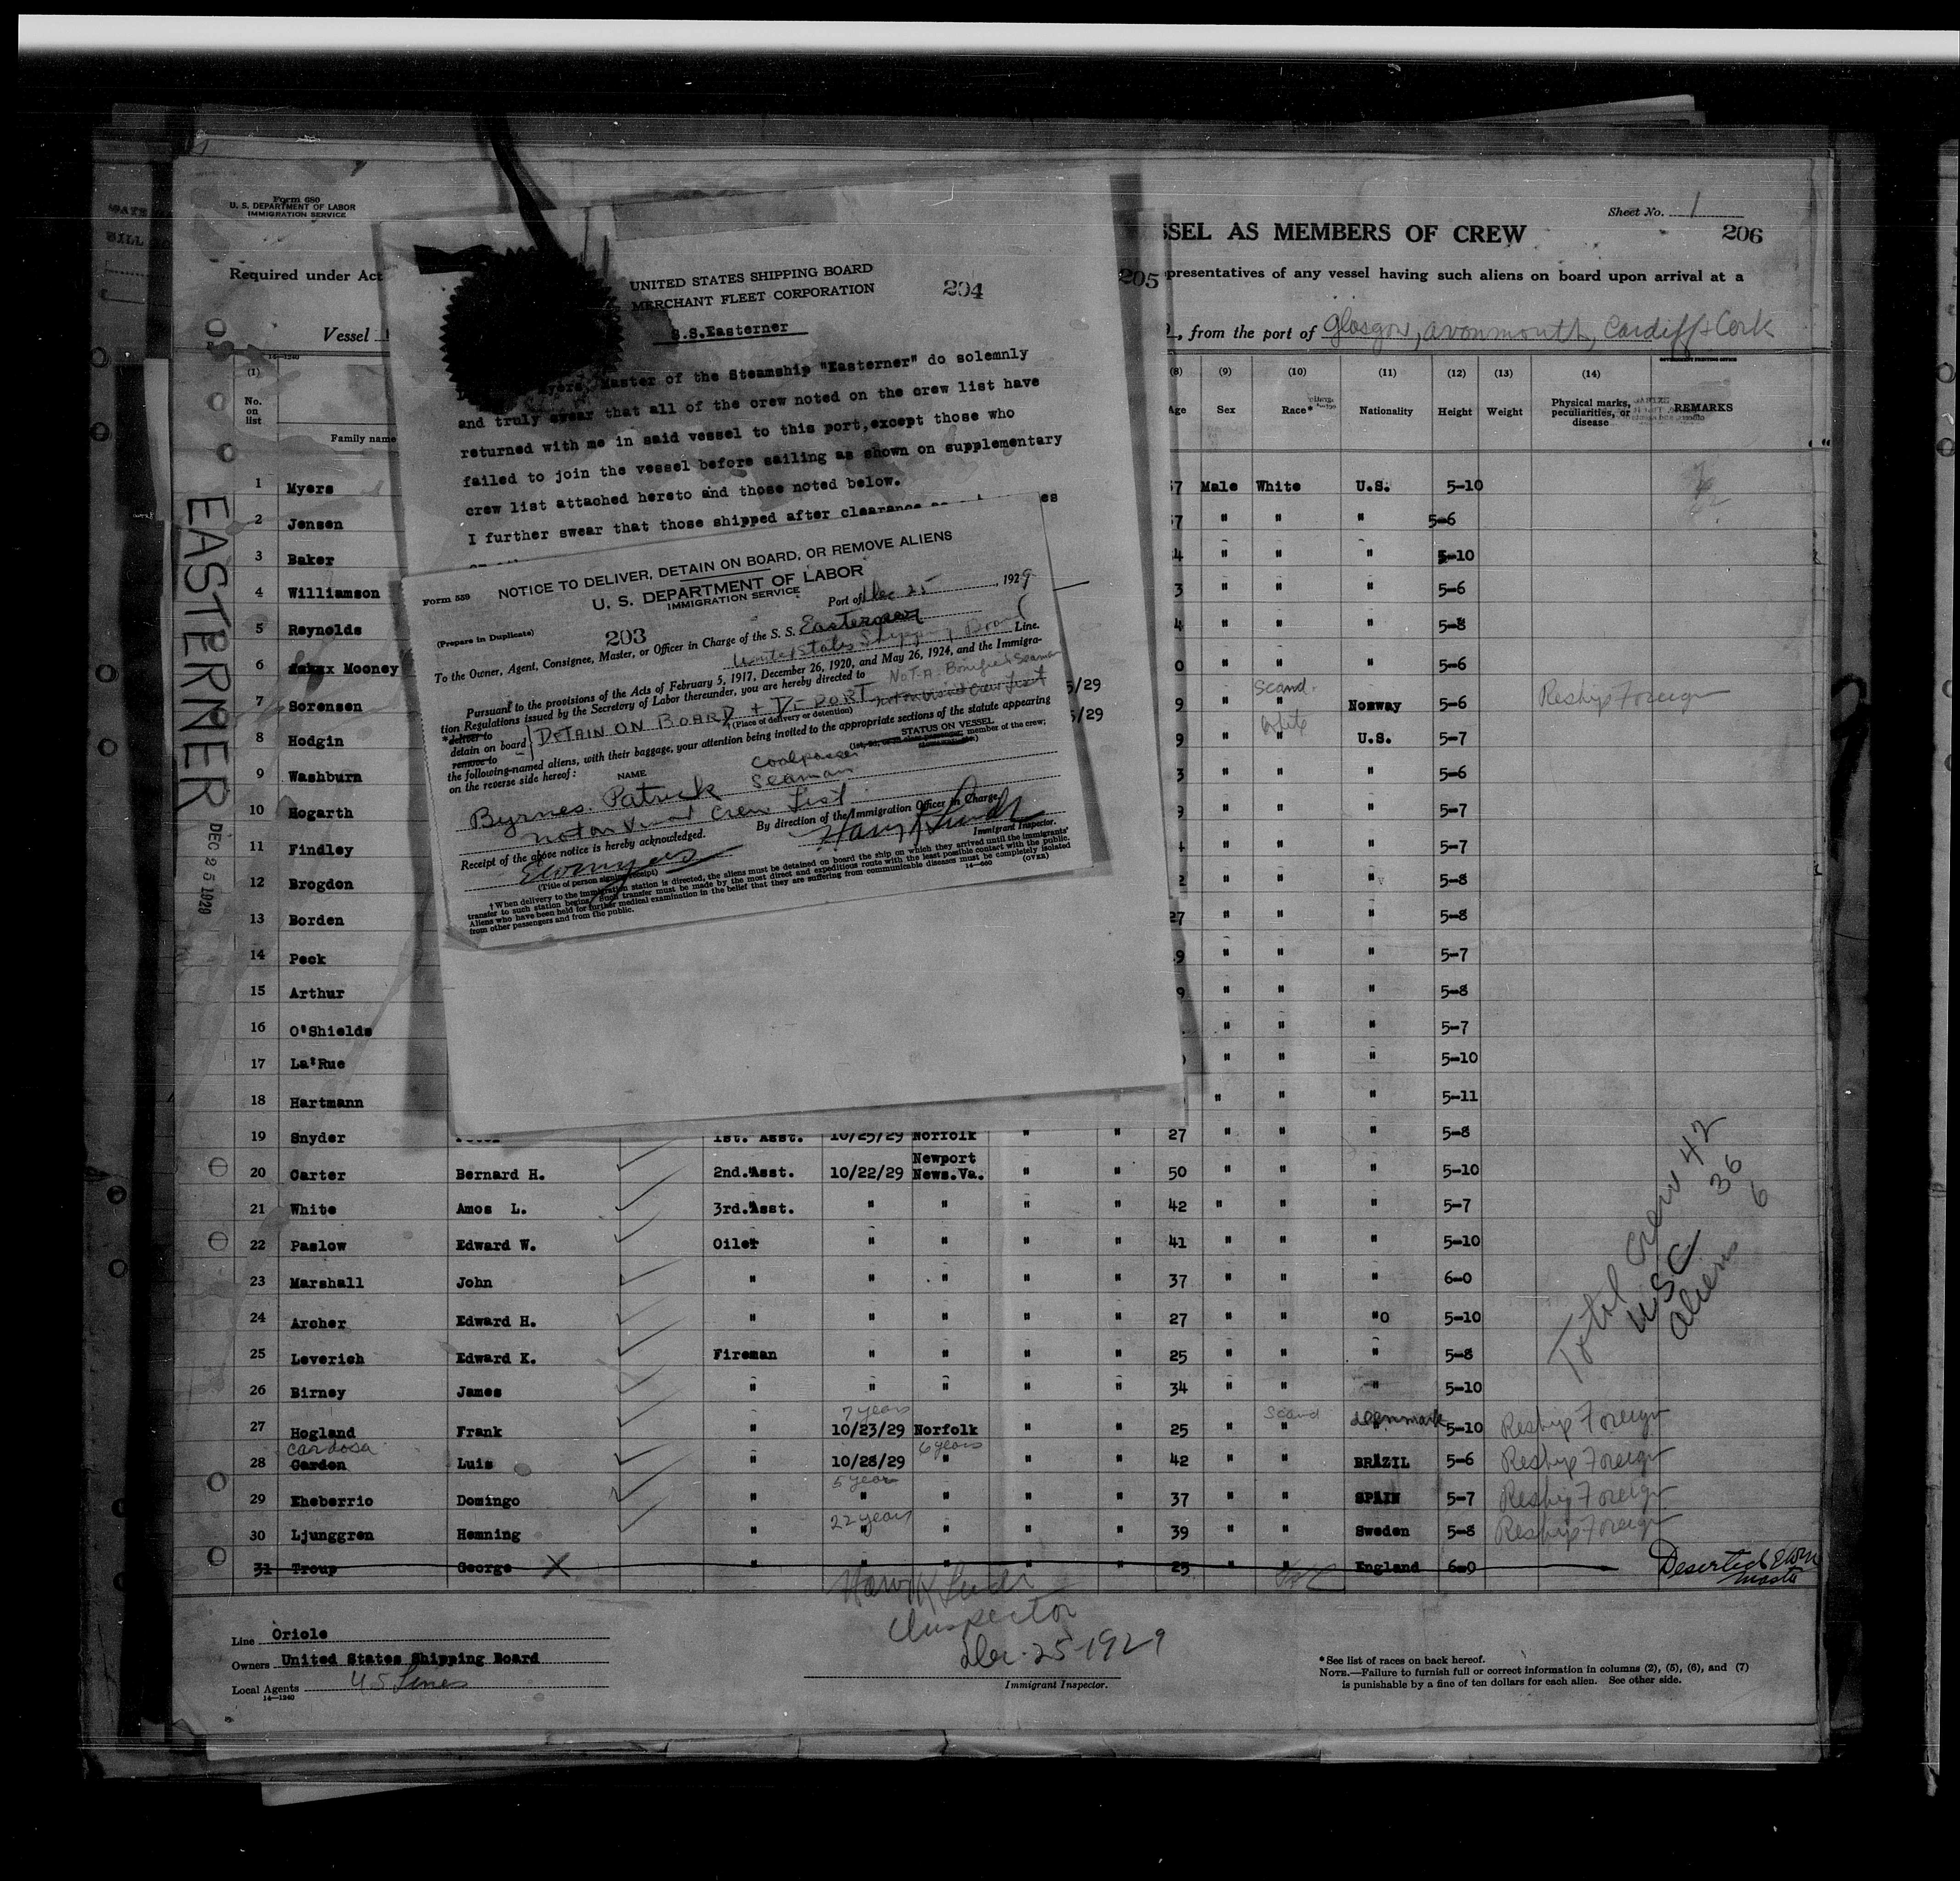 Form 680
U. S. DEPARTMENT OF LABOR
IMMIGRATION SERVICE
Sheet No. 1
SSEL AS MEMBERS OF CREW
206
Required under Act
205
presentatives of any vessel having such aliens on board upon arrival at a
Vessel
, from the port of Glasgow, Avonmouth, Cardiff & Cork
EASTERNER
DEC 25 1929
UNITED STATES SHIPPING BOARD
MERCHANT FLEET CORPORATION
204
S.S.Easterner
Master of the Steamship "Easterner" do solemnly
and truly swear that all of the crew noted on the crew list have
returned with me in said vessel to this port,except those who
failed to join the vessel before sailing as shown on supplementary
crew list attached hereto and those noted below.
I further swear that those shipped after clearance
Form 559
NOTICE TO DELIVER, DETAIN ON BOARD, OR REMOVE ALIENS
U. S. DEPARTMENT OF LABOR
IMMIGRATION SERVICE
(Prepare in Duplicate)
203
Port of Dec 25, 1929
To the Owner, Agent, Consignee, Master, or Officer in Charge of the S. S. Easterner
United States Shipping Board Line.
Pursuant to the provisions of the Acts of February 5, 1917, December 26, 1920, and May 26, 1924, and the Immigra-
tion Regulations issued by the Secretary of Labor thereunder, you are hereby directed to Not A. Bonified Seaman
*deliver to
detain on board
remove to
DETAIN ON BOARD + DEPORT not on visaed Crew List
(Place of delivery or detention)
the following-named aliens, with their baggage, your attention being invited to the appropriate sections of the statute appearing
on the reverse side hereof:
NAME
STATUS ON VESSEL
member of the crew;
Coalpasser
Byrnes. Patrick Seaman
not on Visaed Crew List
By direction of the Immigration Officer in Charge,
Receipt of the above notice is hereby acknowledged.
Immigrant Inspector.
(Title of person signing receipt)
† When delivery to the immigration station is directed, the aliens must be detained on board the ship on which they arrived until the immigrants'
transfer to such station begins. Such transfer must be made by the most direct and expeditious route with the least possible contact with the public.
Aliens who have been held for further medical examination in the belief that they are suffering from communicable diseases must be completely isolated
from other passengers and from the public.
14—660
(OVER)
5/29
5/29
(1) (8) (9) (10) (11) (12) (13) (14)
No. on list Family name Age Sex Race* Nationality Height Weight Physical marks, peculiarities, or disease REMARKS
1 Myers 7 Male White U.S. 5-10
2 Jensen 7 " " " 5-6
3 Baker 4 " " " 5-10
4 Williamson 3 " " " 5-6
5 Reynolds 4 " " " 5-8
6 Mooney 0 " " " 5-6
7 Sorensen 9 " Scand. " Norway 5-6 Reship Foreign
8 Hodgin 9 " White " U.S. 5-7
9 Washburn 3 " " " 5-6
10 Hogarth " " " 5-7
11 Findley " " " 5-7
12 Brogdon 2 " " " 5-8
13 Borden 27 " " " 5-8
14 Peck 9 " " " 5-7
15 Arthur 9 " " " 5-8
16 O'Shields " " " 5-7
17 La'Rue " " " 5-10
18 Hartmann " " " 5-11
19 Snyder 1st. Asst. 10/25/29 Norfolk " " 27 " " " 5-8
20 Carter Bernard H. 2nd.Asst. 10/22/29 Newport News.Va. " " 50 " " " 5-10
21 White Amos L. 3rd.Asst. " " " " 42 " " " 5-7
22 Paslow Edward W. Oiler " " " " 41 " " " 5-10
23 Marshall John " " " " " 37 " " " 6-0
24 Archer Edward H. " " " " " 27 " " "0 5-10
25 Leverich Edward K. Fireman " " " " 25 " " " 5-8
26 Birney James " " " " " 34 " " " 5-10
7 years
27 Hogland Frank " 10/23/29 Norfolk " " 25 " Scand " Denmark 5-10 Reship Foreign
Cardosa 6 years
28 Cardon Luis " 10/28/29 " " " 42 " " BRAZIL 5-6 Reship Foreign
5 years
29 Eheberrio Domingo " " " " " 37 " " SPAIN 5-7 Reship Foreign
22 years
30 Ljunggren Hemning " " " " " 39 " " Sweden 5-8 Reship Foreign
31 Troup George X " " " " " 25 " " England 6-0 Deserted
Master
Total Crew 42
USC 36
Aliens 6
Inspector
Dec. 25-1929
Line Oriole
Owners United States Shipping Board
Local Agents
14—1240
Immigrant Inspector.
*See list of races on back hereof.
NOTE.—Failure to furnish full or correct information in columns (2), (5), (6), and (7)
is punishable by a fine of ten dollars for each alien. See other side.